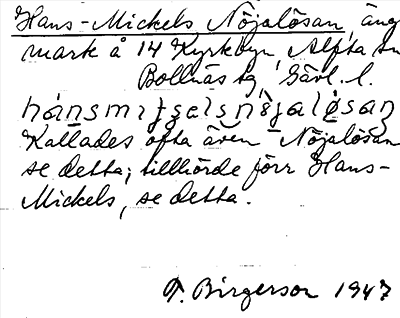 Hans-Mickels Nöjalösan äng
mark å 14 Kyrkbyn, Alfta sn
Bollnäs tg, Gävl. l.
Kallades ofta även Nöjalösan
se detta; tillhörde förr Hans-
Mickels, se detta.
F. Birgerson 1947